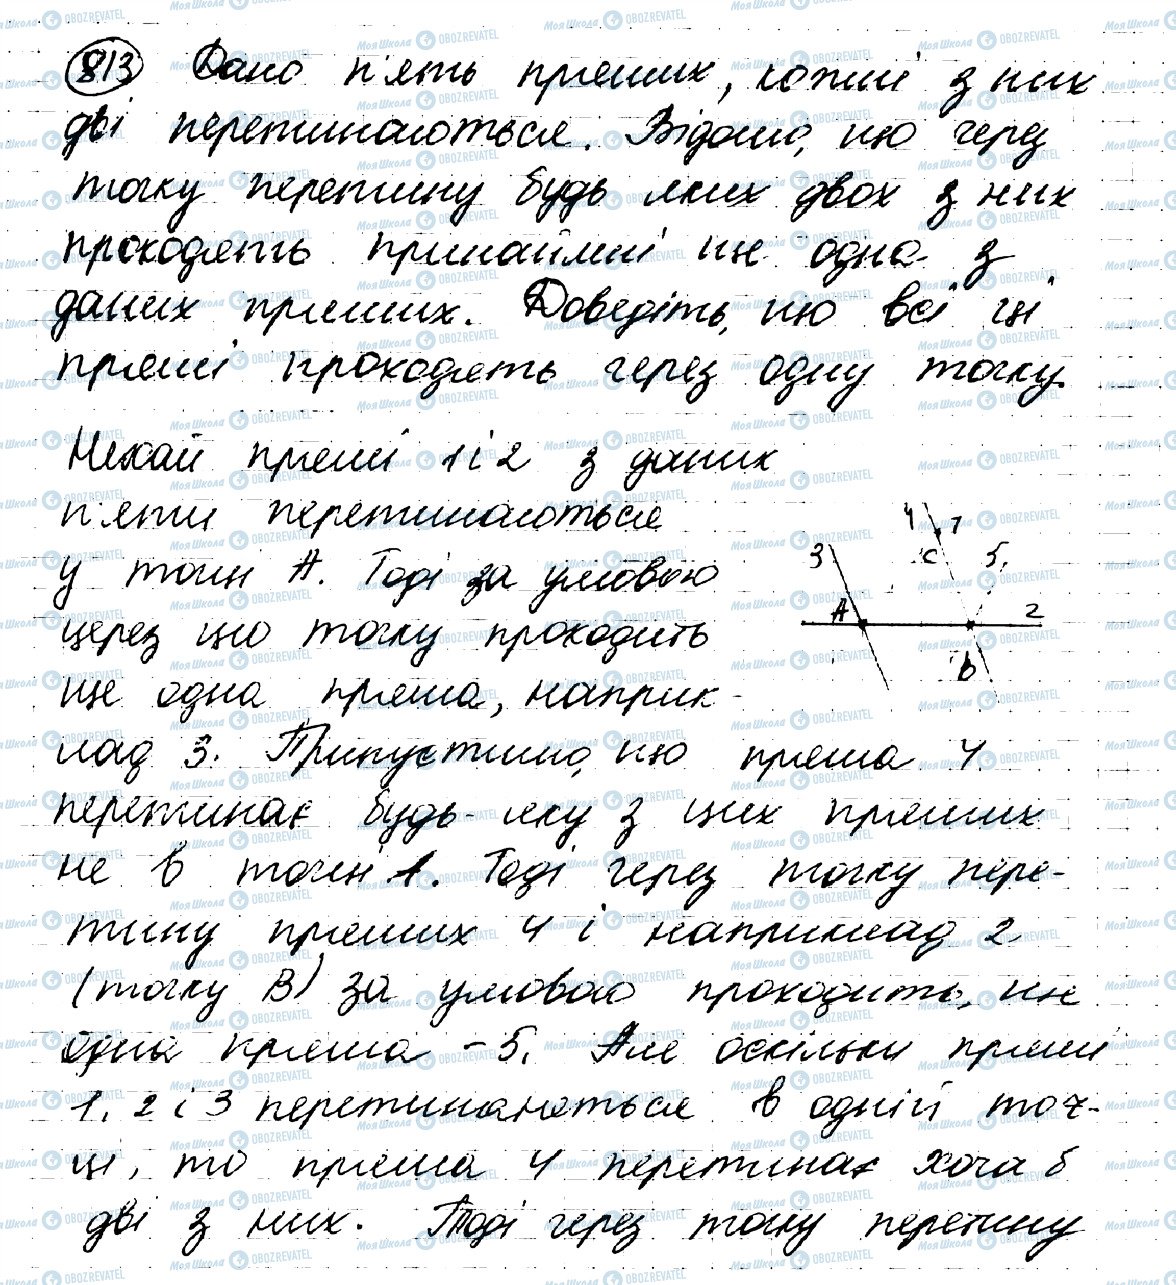 813 Дано п'ять прямих, кожні з них
дві перетинаються. Відомо, що через
точку перетину будь яких двох з них
проходять принаймні ще одна з
даних прямих. Доведіть, що всі ці
прямі проходять через одну точку.
Нехай прямі 1 і 2 з даних
п'яти перетинаються
у точці А. Тоді за умовою
через цю точку проходить
ще одна пряма, наприк-
лад 3. Припустимо, що пряма 4
перетинає будь-яку з цих прямих
не в точці 1. Тоді через точку пере-
тину прямих 4 і наприклад 2
(точку В) за умовою проходить, ще
одна пряма - 5. Але оскільки прямі
1, 2 і 3 перетинаються в одній точ-
ці, то пряма 4 перетинає хоча б
дві з них. Тоді через точку перетину
4 1
3 C 5
A 2
b
МояШкола OBOZREVATEL